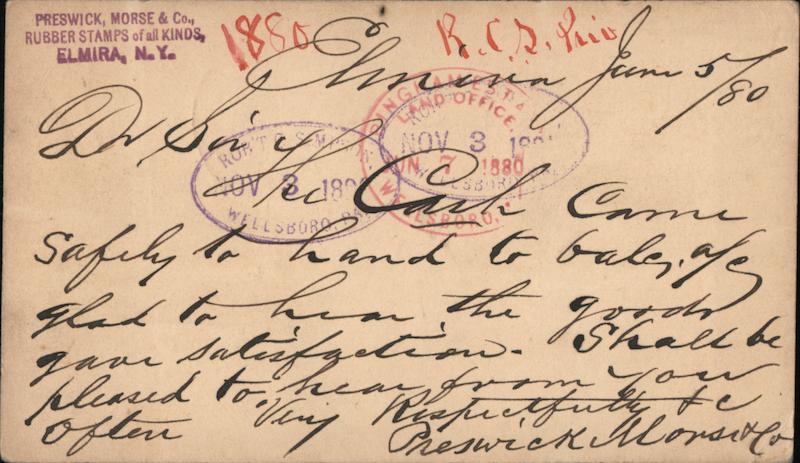 PRESWICK, MORSE & Co.,
RUBBER STAMPS of all KINDS,
ELMIRA, N.Y.
1880
R. C. S. Priv
Elmira June 5/80
Dr Sir
BINGHAM ESTATE
LAND OFFICE.
JUN 7 1880
WELLSBORO,
ROB'T C. S
NOV 3 189
WELLSBORO, PA.
NOV 3 189
WELLSBORO
The Cash Came
safely to hand to balc, a/c
glad to hear the goods
gave satisfaction. Shall be
pleased to hear from you
often Very Respectfully &c
Preswick Morse & Co